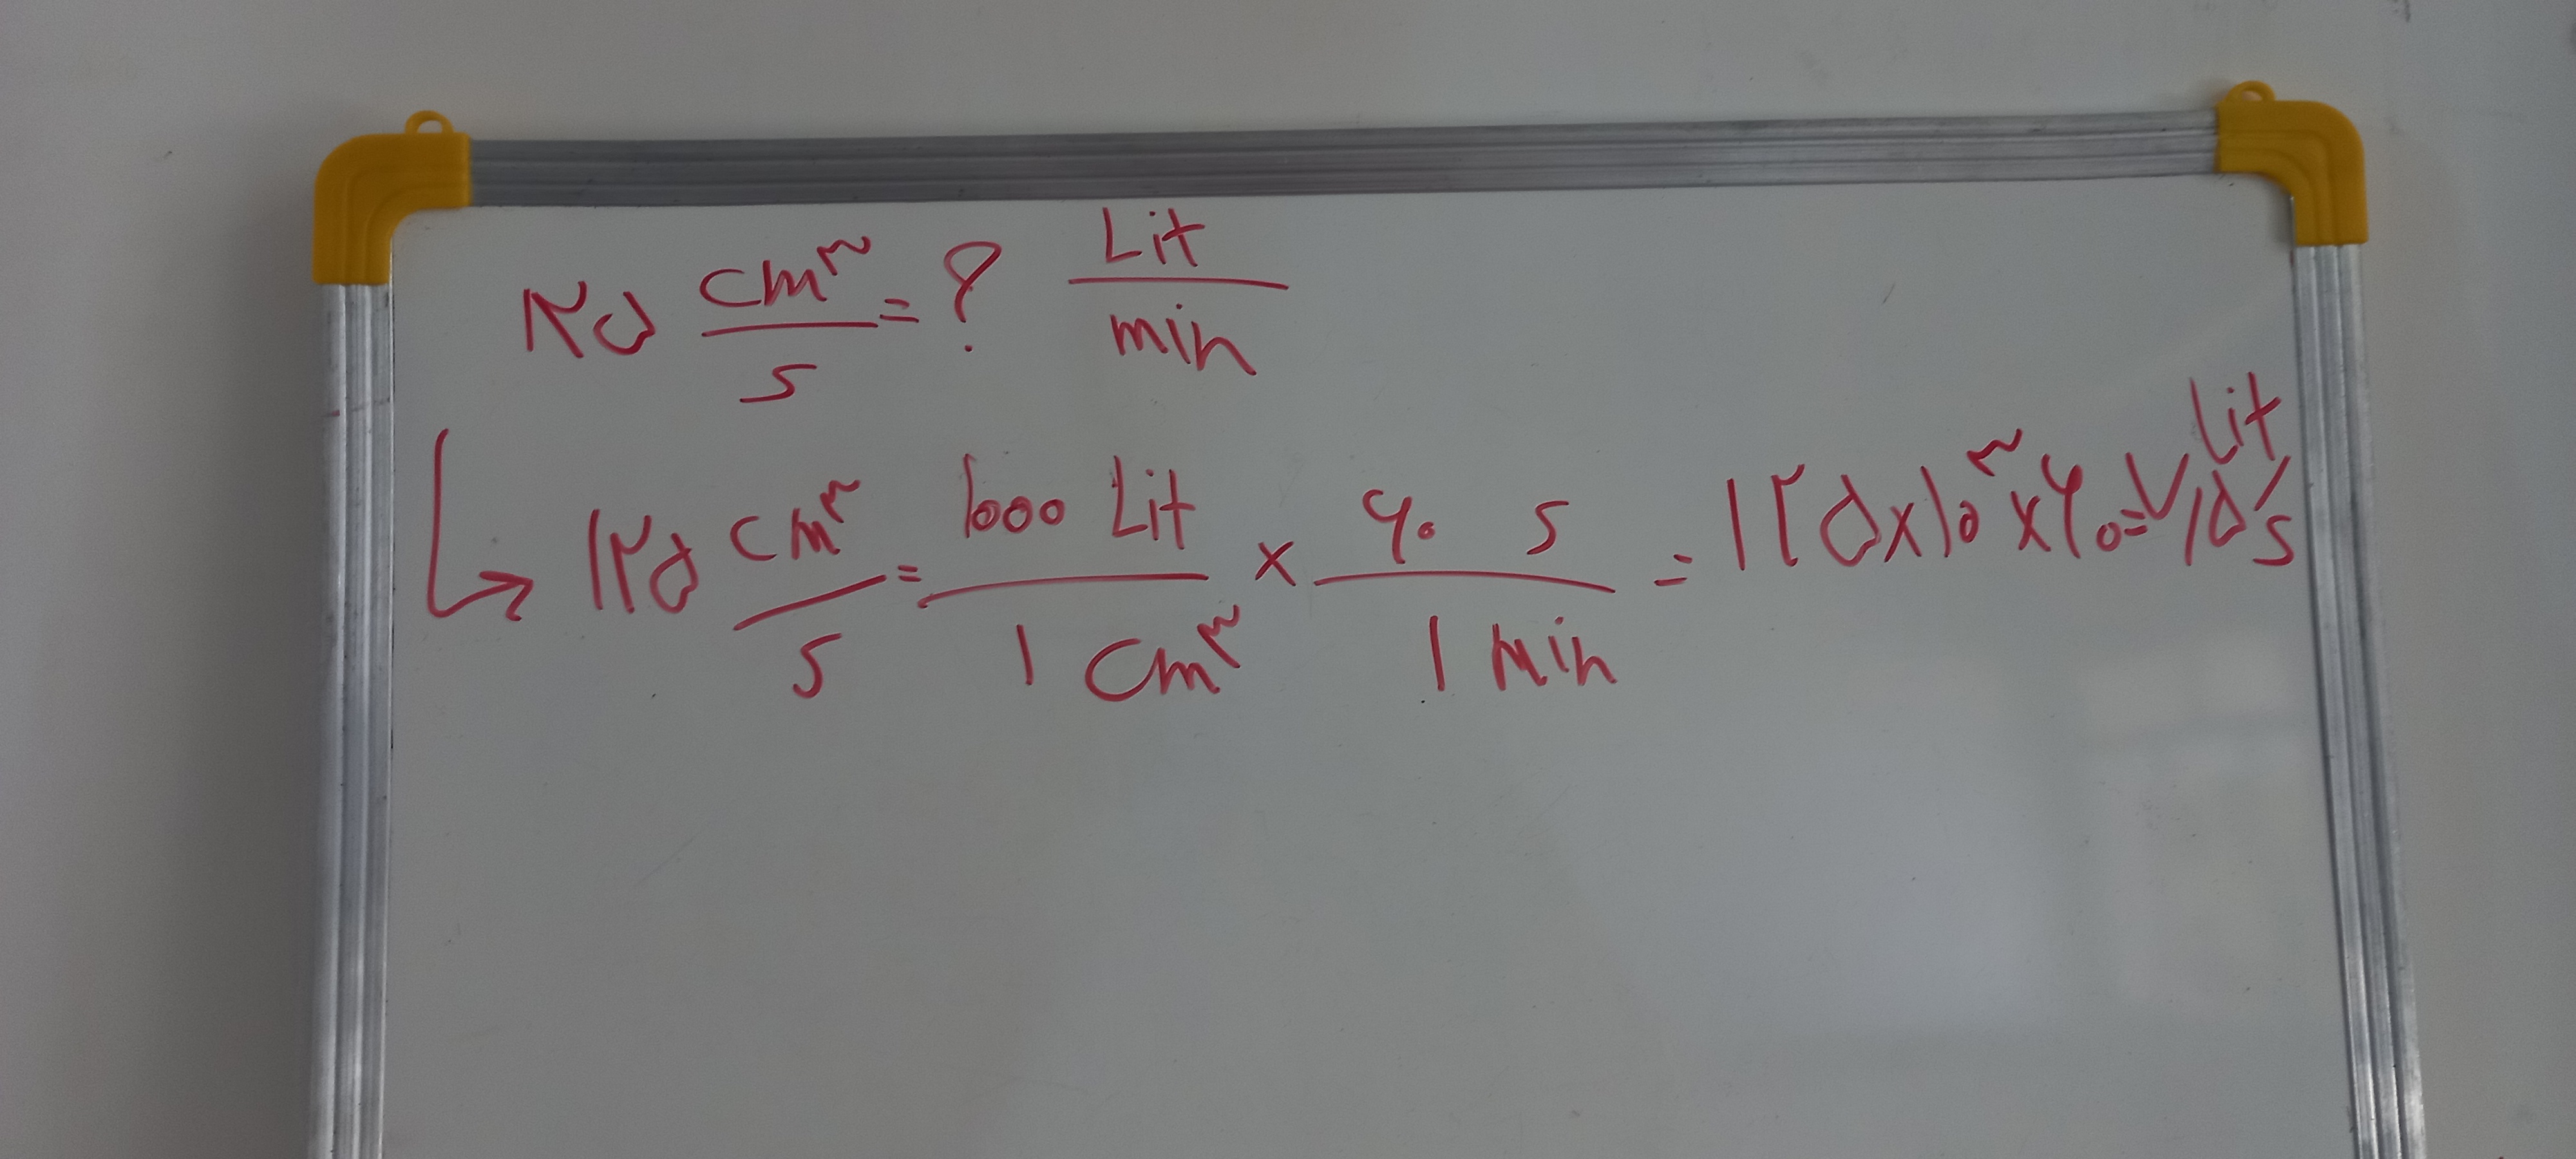 ۱۲۵ cm³/s = ? Lit/min
۱۲۵ cm³/s = ۱۰۰۰ Lit/۱ cm³ × ۶۰ s/۱ min = ۱۲۵×۱۰³×۶۰=۷/۵ Lit/s